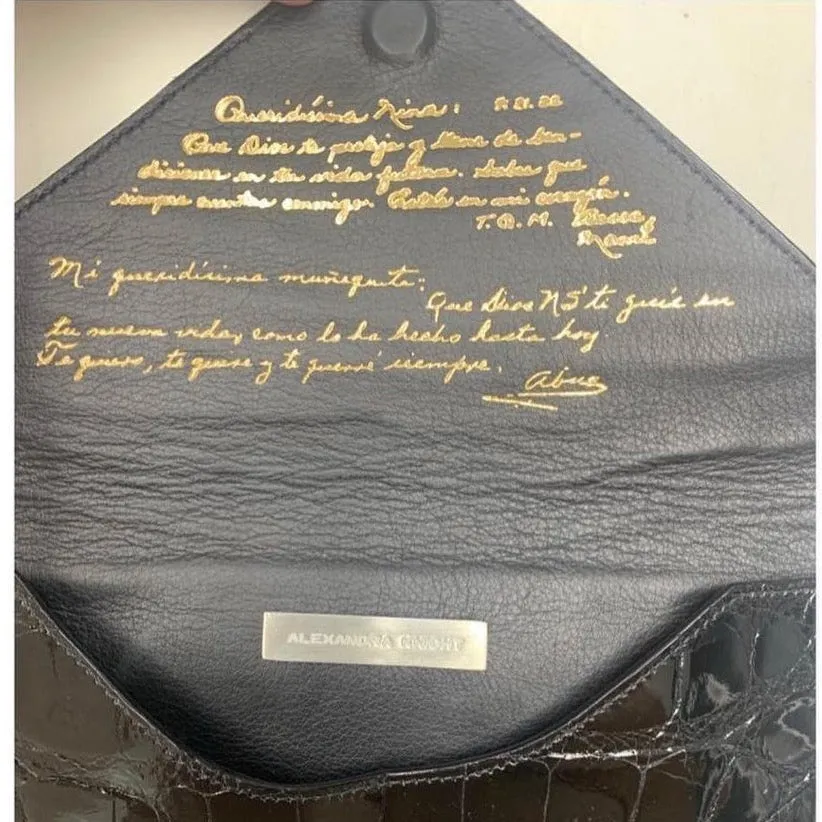 Queridísima Nina:
Que Dios te proteja y llene de ben-
diciones en tu vida futura. Sabes que
siempre cuentas conmigo. Estás en mi corazón.
T.Q.M. Besos,
Mamá
Mi queridísima muñequita:
Que Dios NS' te guíe en
tu nueva vida, como lo ha hecho hasta hoy.
Te quiero, te quise y te querré siempre.
Abue
ALEXANDRA KNIGHT